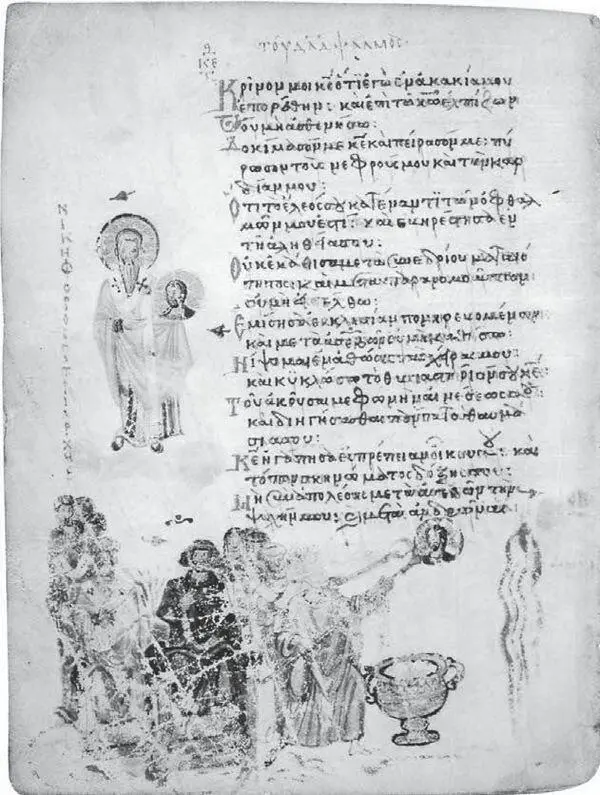 τοῦ δαδ ψαλμος
Κρῖνόν μοι κε ὅτι ἐγὼ ἐν ἀκακία μου
ἐπορεύθην: καὶ ἐπὶ τῶ κω ἐλπίζων
οὐ μὴ ἀσθενήσω:
Δοκίμασόν με κε καὶ πείρασόν με: πύ
ρωσον τοὺς νεφρούς μου καὶ τὴν καρ
δίαν μου:
Ὅτι τὸ ἔλεός σου κατέναντι τῶν ὀφθαλ
μῶν μου ἐστὶ: καὶ εὐηρέστησα ἐν
τῆ ἀληθεία σου:
Οὐκ ἐκάθισα μετὰ συνεδρίου ματαιό
τητος: καὶ μετὰ παρανομούντων
οὐ μὴ εἰσέλθω:
Ἐμίσησα ἐκκλησίαν πονηρευομένων
καὶ μετὰ ἀσεβῶν οὐ μὴ καθίσω:
Νίψομαι ἐν ἀθώοις τὰς χεῖράς μου
καὶ κυκλώσω τὸ θυσιαστήριόν σου κε:
Τοῦ ἀκοῦσαι με φωνὴν αἰνέσεώς σου
καὶ διηγήσασθαι πάντα τὰ θαυμά
σιά σου:
Κε ἠγάπησα εὐπρέπειαν οἴκου σου: καὶ
τόπον σκηνώματος δόξης σου:
Μὴ συναπολέσης μετὰ ἀσεβῶν τὴν
ψυχήν μου: καὶ μετὰ ἀνδρῶν αἱμα
ΝΙΚΗΦΟΡΟΣ